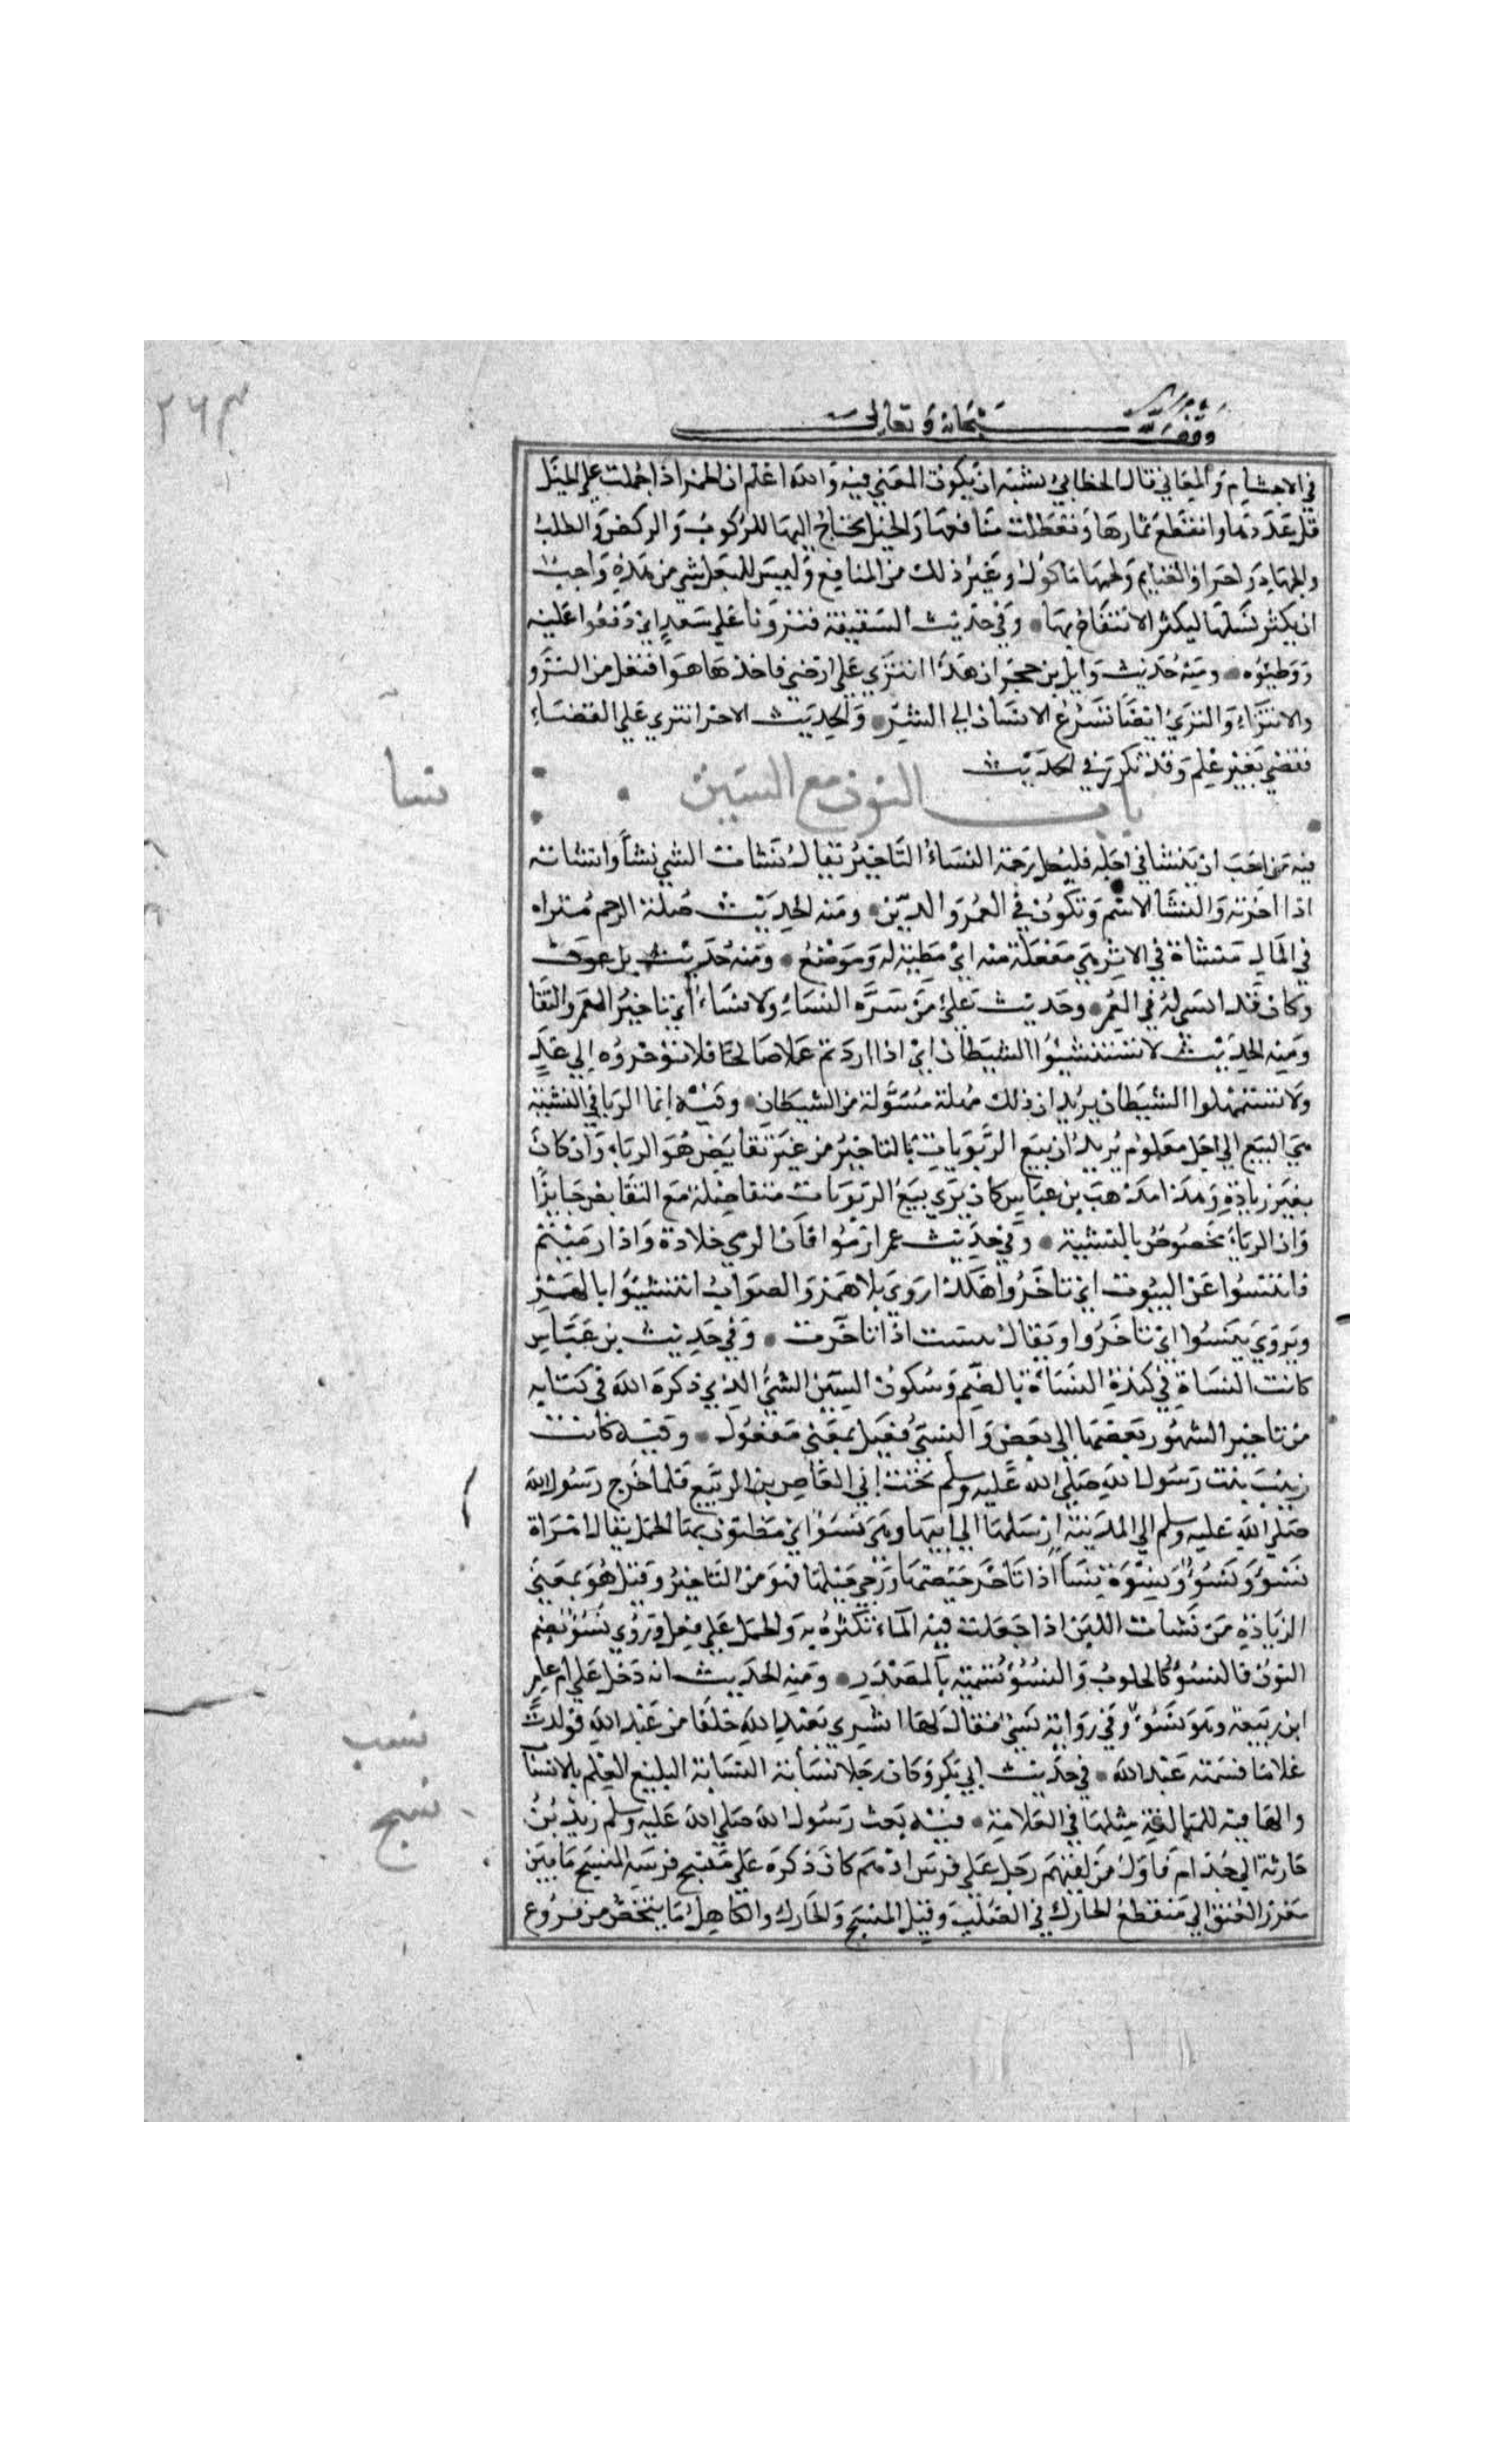 ٢٦٣
وقف لله سبحانه وتعالى
في الاجسام والمعاني قال الخطابي يشبه ان يكون المعني فيه والله اعلم ان الحمر اذا حملت علي الخيل
قل عددها وانقطع نماوها وتعطلت منافعها والخيل يحتاج اليها للركوب والركض والطلب
والجهاد واحراز الغنايم ولحمها ماكول وغير ذلك من المنافع وليس للبغل شي من هذه واحب
ان يكثر نسلها ليكثر الانتفاع بها وفي حديث السقيفة فنزونا علي سعد اي دفعوا عليه
ووطئوه ومنه حديث وايل بن حجر ان هذا انتزي علي ارضي فاخذها هو افتعل من النزو
والانتزاء والتنزي ايضا تسرع الانسان الي الشر والحديث الاخر انتزي علي القضاء
فقضي بغير علم وقد تكرر في الحديث
باب النون مع السين
نسا
فيه من احب ان ينسا في اجله فليصل رحمه النساء التاخير يقال نسات الشي نسأ وانساته
اذا اخرته والنسأ الاسم وتكون في العمر والدين ومنه الحديث صلة الرحم مثراه
في المال منساة في الاثر هي مفعلة منه اي مظنة له وموضع ومنه حديث بن عوف
وكان قد انسي له في العمر وحديث علي من سره النساء ولا نساء اي تاخير العمر والبقا
ومنه الحديث لا تستنسئوا الشيطان اي اذا اردتم عملا صالحا فلا توخروه الي غد
ولا تستمهلوا الشيطان يريد ان ذلك مهلة مسولة من الشيطان وفيه انما الربا في النسئية
هي البيع الي اجل معلوم يريد ان بيع الربويات بالتاخير من غير تقابض هو الربا وان كان
بغير زيادة وهذا مذهب بن عباس كان يري بيع الربويات متفاضلة مع التقابض جايزا
وان الربا مخصوص بالنسئية وفي حديث عمر ارموا فان الرمي خلادة واذا رميتم
فانتسوا عن البيوت اي تاخروا هكذا روي بلا همز والصواب انتسئوا بالهمز
ويروي بنسوا اي تاخروا ويقال بنست اذا تاخرت وفي حديث بن عباس
كانت النساة في كندة النساة بالضم وسكون السين النسي الذي ذكره الله في كتابه
من تاخير الشهور بعضها الي بعض والنسي فعيل بمعني مفعول وفيه كانت
زينب بنت رسول الله صلي الله عليه وسلم تحت ابي العاص بن الربيع فلما خرج رسول الله
صلي الله عليه وسلم الي المدينة ارسلها الي ابيها وهي نسوا اي مظنون بها الحمل يقال امراة
نسؤ ونسوء ونسوة نساء اذا تاخر حيضها ورجي حبلها فهو من التاخير وقيل هو بمعني
الزيادة من نسات اللبن اذا جعلت فيه الماء تكثره به والحمل علي فعل وروي نسؤ بضم
النون فالنسؤ كالحلوب والنسؤ تسمية بالمصدر ومنه الحديث انه دخل علي ام عامر
ابن ربيعة وهو نسوء وفي رواية نسئ فقال لها ابشري بعبد الله خلفا من عبد الله فولدت
نسب
غلاما فسمته عبد الله في حديث ابي بكر وكان رجلا نسابة النسابة البليغ العلم بالانسا
نسج
والها فيه للمبالغة مثلها في العلامة فيه بعث رسول الله صلي الله عليه وسلم زيد بن
حارثة الي جذام فاول من لقيهم رجل علي فرس ادهم كان ذكره علي منسج فرسه المنسج ما بين
مغرز العنق الي منقطع الحارك في الصلب وقيل المنسج والحارك والكاهل ما شخص من فروع